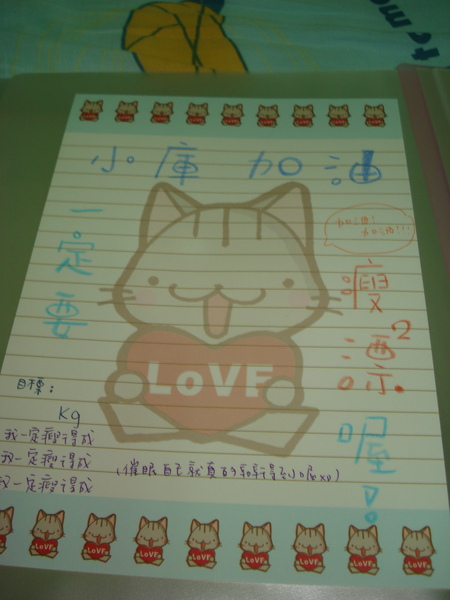 小庫 加油
一定要
加油!
加油!!!
瘦
漂2.
喔!
LOVE
目標:
Kg
我一定瘦得成
我一定瘦得成
我一定瘦得成
(催眠自己就真的瘦得到喔xD)
LOVE LOVE LOVE LOVE LOVE LOVE LOVE LOVE